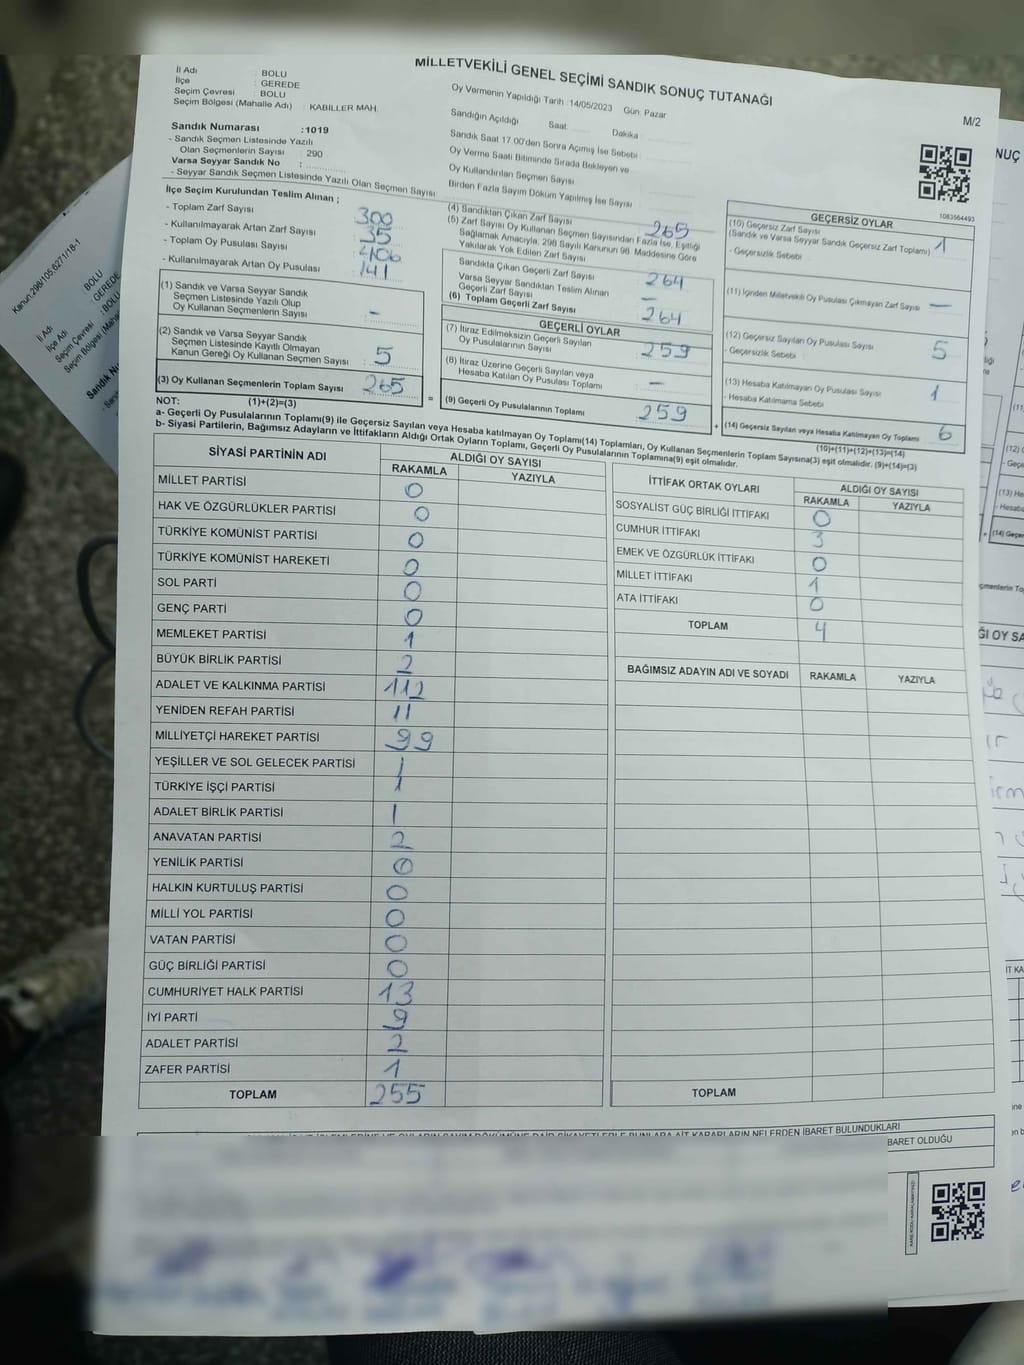 MİLLETVEKİLİ GENEL SEÇİMİ SANDIK SONUÇ TUTANAĞI
M/2
İl Adı : BOLU
İlçe : GEREDE
Seçim Çevresi : BOLU
Seçim Bölgesi (Mahalle Adı) : KABİLLER MAH.
Sandık Numarası : 1019
- Sandık Seçmen Listesinde Yazılı
Olan Seçmenlerin Sayısı : 290
Varsa Seyyar Sandık No :
- Seyyar Sandık Seçmen Listesinde Yazılı Olan Seçmen Sayısı
Oy Vermenin Yapıldığı Tarih : 14/05/2023 Gün: Pazar
Sandığın Açıldığı Saat Dakika
Sandık Saat 17.00'den Sonra Açımış İse Sebebi :
Oy Verme Saati Bitiminde Sırada Bekleyen ve
Oy Kullandırılan Seçmen Sayısı
Birden Fazla Sayım Döküm Yapılmış İse Sayısı
İlçe Seçim Kurulundan Teslim Alınan ;
- Toplam Zarf Sayısı 300
- Kullanılmayarak Artan Zarf Sayısı 35
- Toplam Oy Pusulası Sayısı
- Kullanılmayarak Artan Oy Pusulası 141
(1) Sandık ve Varsa Seyyar Sandık
Seçmen Listesinde Yazılı Olup
Oy Kullanan Seçmenlerin Sayısı -
(2) Sandık ve Varsa Seyyar Sandık
Seçmen Listesinde Kayıtlı Olmayan
Kanun Gereği Oy Kullanan Seçmen Sayısı 5
(3) Oy Kullanan Seçmenlerin Toplam Sayısı 265
(1)+(2)=(3)
(4) Sandıktan Çıkan Zarf Sayısı 265
(5) Zarf Sayısı Oy Kullanan Seçmen Sayısından Fazla İse, Eşitliği
Sağlamak Amacıyla, 298 Sayılı Kanunun 98. Maddesine Göre
Yakılarak Yok Edilen Zarf Sayısı
Sandıkta Çıkan Geçerli Zarf Sayısı 264
Varsa Seyyar Sandıktan Teslim Alınan
Geçerli Zarf Sayısı -
(6) Toplam Geçerli Zarf Sayısı 264
GEÇERLİ OYLAR
(7) İtiraz Edilmeksizin Geçerli Sayılan
Oy Pusulalarının Sayısı 259
(8) İtiraz Üzerine Geçerli Sayılan veya
Hesaba Katılan Oy Pusulası Toplamı -
= (9) Geçerli Oy Pusulalarının Toplamı 259
1083564493
GEÇERSİZ OYLAR
(10) Geçersiz Zarf Sayısı
(Sandık ve Varsa Seyyar Sandık Geçersiz Zarf Toplamı) 1
- Geçersizlik Sebebi
(11) İçinden Milletvekili Oy Pusulası Çıkmayan Zarf Sayısı -
(12) Geçersiz Sayılan Oy Pusulası Sayısı 5
- Geçersizlik Sebebi
(13) Hesaba Katılmayan Oy Pusulası Sayısı 1
- Hesaba Katılmama Sebebi
+ (14) Geçersiz Sayılan veya Hesaba Katılmayan Oy Toplamı 6
(10)+(11)+(12)+(13)=(14)
NOT:
a- Geçerli Oy Pusulalarının Toplamı(9) ile Geçersiz Sayılan veya Hesaba katılmayan Oy Toplamı(14) Toplamları, Oy Kullanan Seçmenlerin Toplam Sayısına(3) eşit olmalıdır. (9)+(14)=(3)
b- Siyasi Partilerin, Bağımsız Adayların ve İttifakların Aldığı Ortak Oyların Toplamı, Geçerli Oy Pusulalarının Toplamına(9) eşit olmalıdır.
SİYASİ PARTİNİN ADI ALDIĞI OY SAYISI
RAKAMLA YAZIYLA
MİLLET PARTİSİ 0
HAK VE ÖZGÜRLÜKLER PARTİSİ 0
TÜRKİYE KOMÜNİST PARTİSİ 0
TÜRKİYE KOMÜNİST HAREKETİ 0
SOL PARTİ 0
GENÇ PARTİ 0
MEMLEKET PARTİSİ 1
BÜYÜK BİRLİK PARTİSİ 2
ADALET VE KALKINMA PARTİSİ 112
YENİDEN REFAH PARTİSİ 11
MİLLİYETÇİ HAREKET PARTİSİ 99
YEŞİLLER VE SOL GELECEK PARTİSİ 1
TÜRKİYE İŞÇİ PARTİSİ 1
ADALET BİRLİK PARTİSİ 1
ANAVATAN PARTİSİ 2
YENİLİK PARTİSİ 0
HALKIN KURTULUŞ PARTİSİ 0
MİLLİ YOL PARTİSİ 0
VATAN PARTİSİ 0
GÜÇ BİRLİĞİ PARTİSİ 0
CUMHURİYET HALK PARTİSİ 13
İYİ PARTİ 9
ADALET PARTİSİ 2
ZAFER PARTİSİ 1
TOPLAM 255
İTTİFAK ORTAK OYLARI ALDIĞI OY SAYISI
RAKAMLA YAZIYLA
SOSYALİST GÜÇ BİRLİĞİ İTTİFAKI 0
CUMHUR İTTİFAKI 3
EMEK VE ÖZGÜRLÜK İTTİFAKI 0
MİLLET İTTİFAKI 1
ATA İTTİFAKI 0
TOPLAM 4
BAĞIMSIZ ADAYIN ADI VE SOYADI RAKAMLA YAZIYLA
TOPLAM
BARET OLDUĞU
Kanun:298/105 6271/18-1
İl Adı BOLU
İlçe Adı GEREDE
Seçim Çevresi BOLU